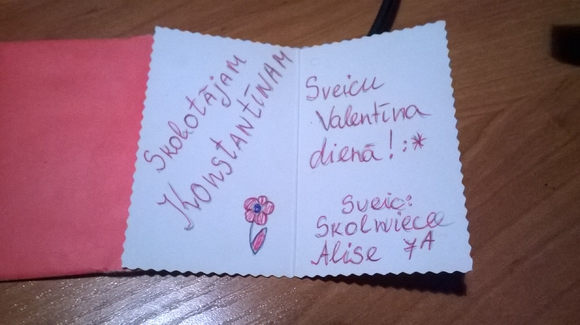 Skolotājam
Konstantīnam
Sveicu
Valentīna
dienā! :*
Sveic:
Skolniece
Alise 7A